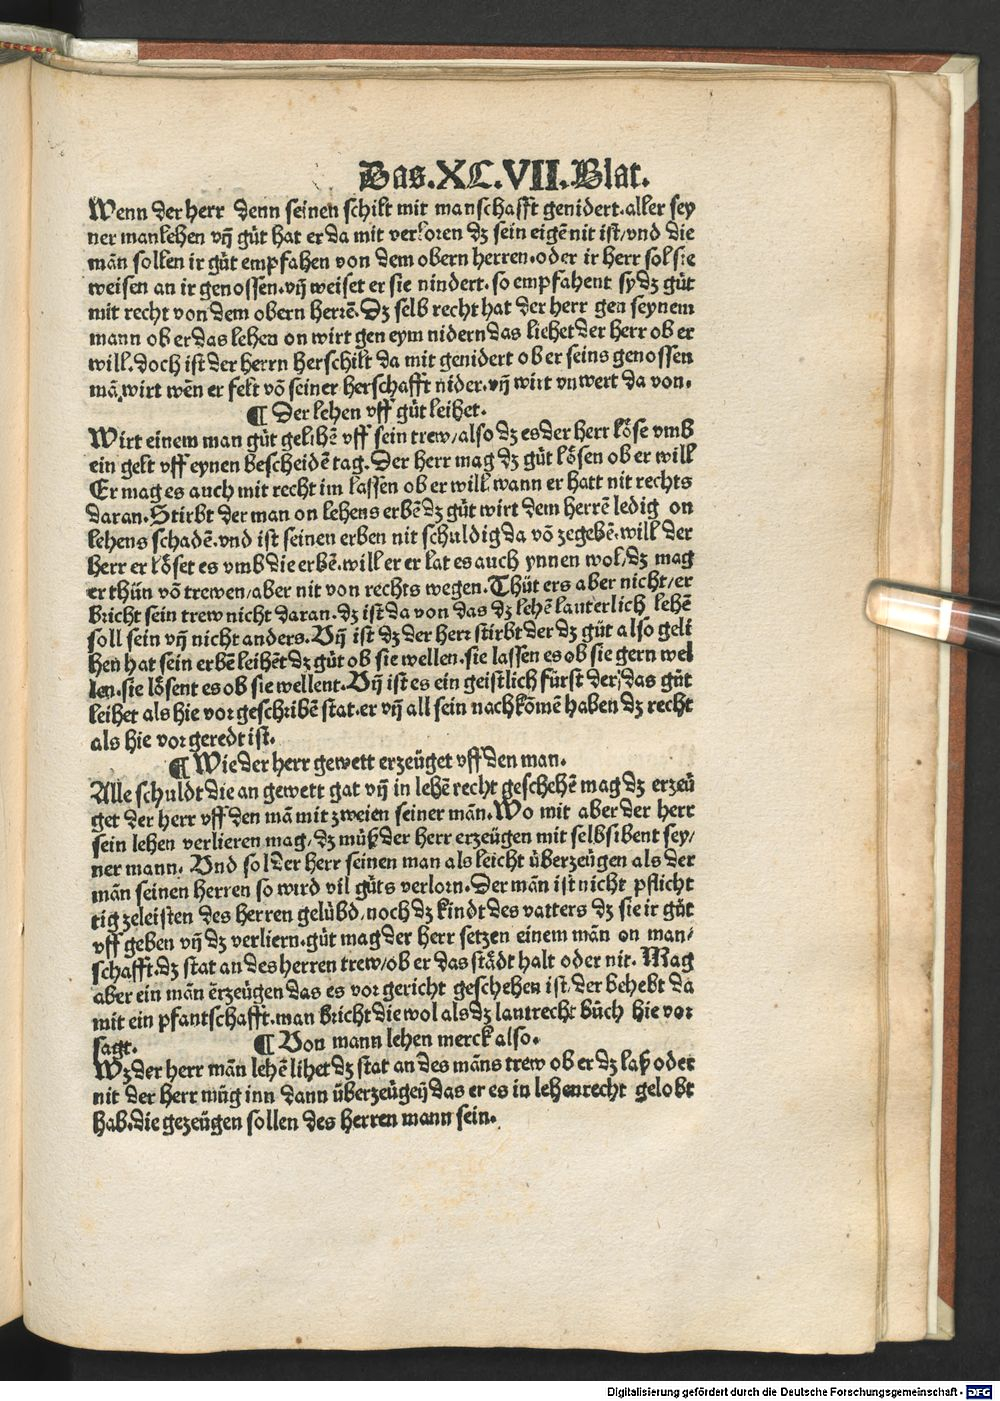 Das.XC.VII.Blat.
Wenn der herr denn seinen schilt mit manschafft genidert.aller sey
ner manlehen vñ gůt hat er da mit verloren dz sein eigẽ nit ist/vnd die
mãn sollen ir gůt empfahen von dem obern herren.oder ir herr sol sie
weisen an ir genossen.vñ weiset er sie nindert.so empfahent sy dz gůt
mit recht von dem obern herrẽ.Dz selb recht hat der herr gen seynem
mann ob er das lehen on wirt gen eym nidern das liehet der herr ob er
will.doch ist der herrn herschilt da mit genidert ob er seins genossen
mã wirt wẽn er felt võ seiner herschafft nider.vñ wirt vnwert da von.
¶ Der lehen vff gůt leihet.
Wirt einem man gůt gelihẽ vff sein trew/also dz es der herr lőse vmb
ein gelt vff eynen bescheidẽ tag.Der herr mag dz gůt lősen ob er will
Er mag es auch mit recht im lassen ob er will.wann er hatt nit rechts
daran.Stirbt der man on lehens erbẽ dz gůt wirt dem herrẽ ledig on
lehens schadẽ.vnd ist seinen erben nit schuldig da võ zegebẽ.will der
herr er lőset es vmb die erbẽ.will er er lat es auch ynnen wol/dz mag
er thůn võ trewen/aber nit von rechts wegen.Thůt ers aber nicht/er
bricht sein trew nicht daran.dz ist da von das dz lehẽ lauterlich lehẽ
soll sein vñ nicht anders.Vñ ist dz der herr stirbt der dz gůt also geli
hen hat sein erbẽ leihẽt dz gůt ob sie wellen.sie lassen es ob sie gern wel
len.sie lősent es ob sie wellent.Vñ ist es ein geistlich fürst der das gůt
leihet als hie vor geschribẽ stat.er vñ all sein nachkõmẽ haben dz recht
als hie vor geredt ist.
¶ Wie der herr gewett erzeüget vff den man.
Alle schuldt die an gewett gat vñ in lehẽ recht geschehẽ mag dz erzeü
get der herr vff den mã mit zweien seiner mãn.Wo mit aber der herr
sein lehen verlieren mag/dz můß der herr erzeügen mit selbsibent sey/
ner mann. Vnd sol der herr seinen man als leicht überzeügen als der
mãn seinen herren so wird vil gůts verlorn.Der mãn ist nicht pflicht
tig zeleisten des herren gelübd/noch dz kindt des vatters dz sie ir gůt
vff geben vñ dz verliern.gůt mag der herr setzen einem mãn on man/
schafft.dz stat an des herren trew/ob er das stådt halt oder nit. Mag
aber ein mãn erzeügen das es vor gericht geschehen ist/der behebt da
mit ein pfantschafft.man bricht die wol als dz lantrecht bůch hie vor
sagt. ¶ Von mann lehen merck also.
Wz der herr mãn lehẽ lihet dz stat an des mãns trew ob er dz laß oder
nit der herr můg inn dann überzeügeñ das er es in lehenrecht gelobt
hab.die gezeügen sollen des herren mann sein.
Digitalisierung gefördert durch die Deutsche Forschungsgemeinschaft - DFG